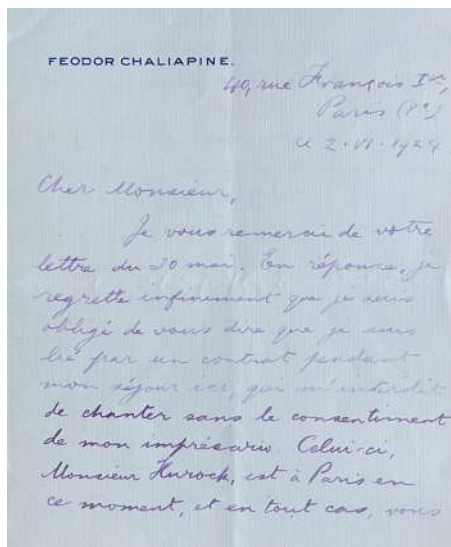 FEODOR CHALIAPINE.
40, rue François Ier,
Paris (8e)
le 2. VI. 1924
Cher Monsieur,
Je vous remercie de votre
lettre du 20 mai. En réponse, je
regrette infiniment que je suis
obligé de vous dire que je suis
lié par un contrat pendant
mon séjour ici, qui m'interdit
de chanter sans le consentiment
de mon imprésario. Celui-ci,
Monsieur Hurock, est à Paris en
ce moment, et en tout cas, vous